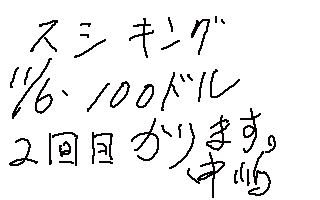 スシキング
11/6、100ドル
2回目かります。
中